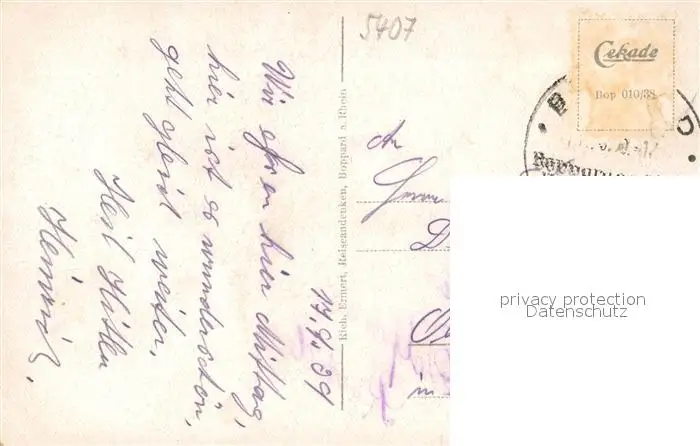 5407
Cekade
Bop 010/38
Boppard
17.9.39
Wir essen hier Mittag,
hier ist es wunderschön,
geht gleich weiter.
Heil Hitler
Heinrich.
Rich. Ermert, Reiseandenken, Boppard a. Rhein
An
D
in
privacy protection
Datenschutz